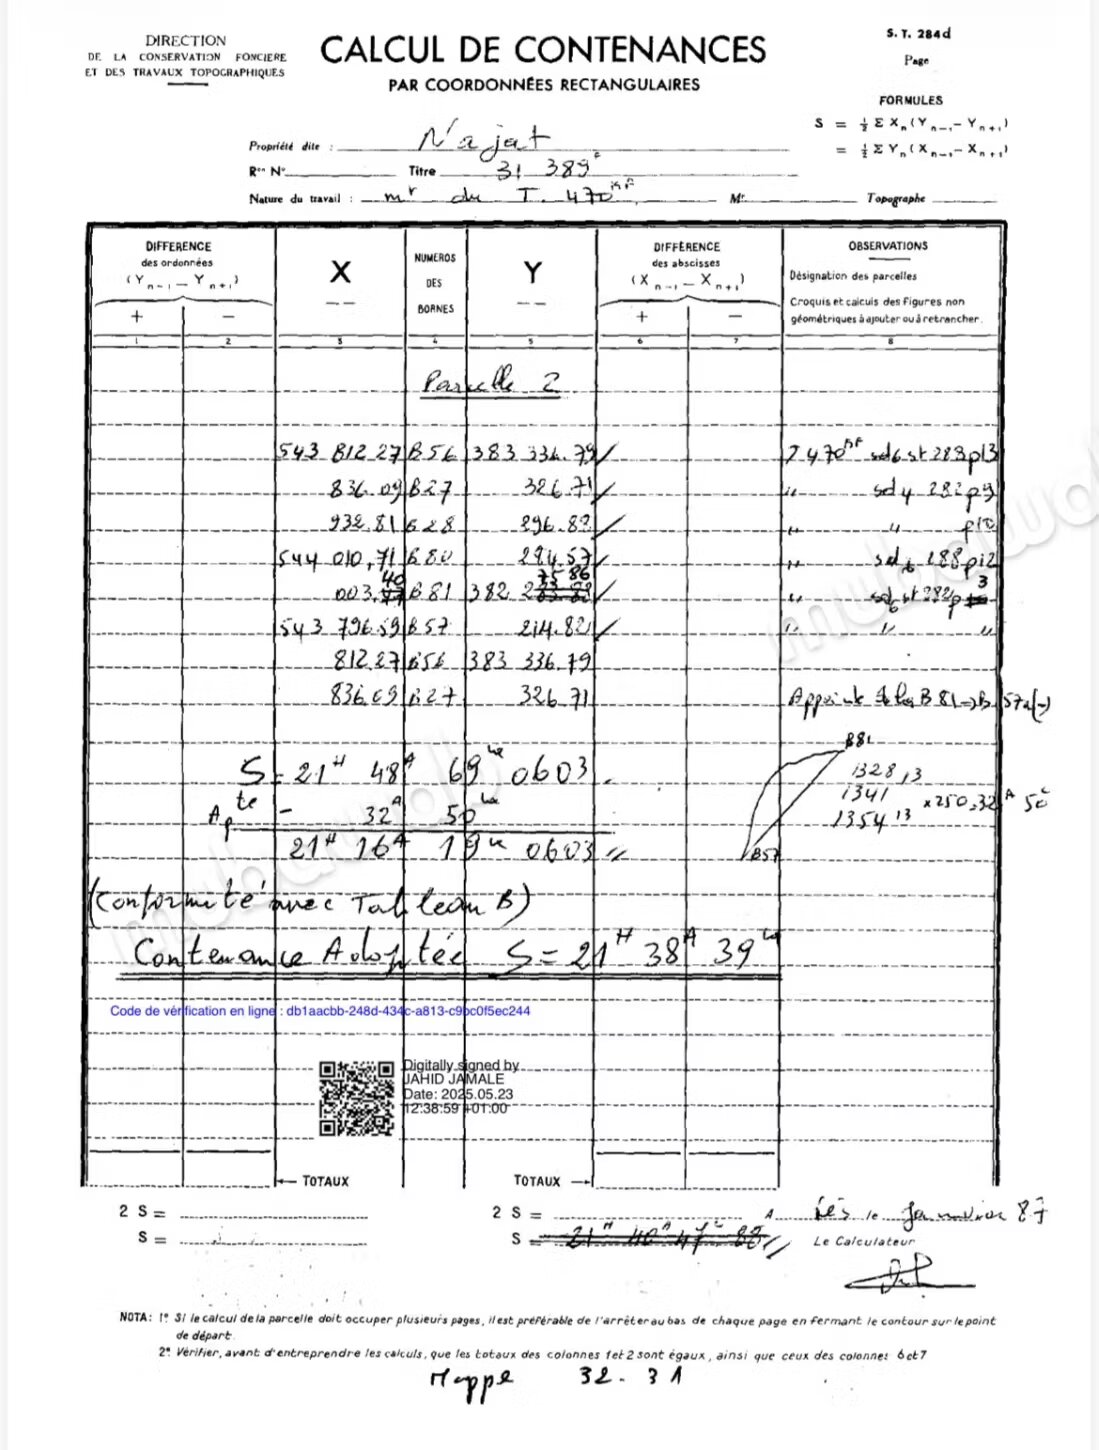 DIRECTION
DE LA CONSERVATION FONCIERE
ET DES TRAVAUX TOPOGRAPHIQUES
CALCUL DE CONTENANCES
PAR COORDONNÉES RECTANGULAIRES
S. T. 284d
Page
FORMULES
S = ½ Σ Xn (Y n-1 - Y n+1)
= ½ Σ Yn (X n-1 - X n+1)
Propriété dite : Najat
Ron No Titre 31 389
Nature du travail : mr du T. 470 Mr Topographe
DIFFERENCE
des ordonnées
(Y n-1 - Y n+1)
+ -
X
NUMEROS
DES
BORNES
Y
DIFFÉRENCE
des abscisses
(X n-1 - X n+1)
+ -
OBSERVATIONS
Désignation des parcelles
Croquis et calculs des figures non
géométriques à ajouter ou à retrancher.
1 2 3 4 5 6 7 8
Parcelle 2
543 812.27 B56 383 336.79
836.09 B27 326.71 " sd4 282p9
932.81 B28 296.82 " "
544 010,71 B80 284.57 "
40 75 86
003. B81 382 2 "
543 796.59 B57 214.82 " " "
812.27 B56 383 336.79
836.09 B27 326.71
B81
1328,13
1341
1354 13 x250,32 A 50
B57
S = 21H 48A 69ca 0603
Apte - 32A 50ca
21H 16A 19ca 0603
(Conformité avec Tableau B)
Contenance Adoptée S = 21H 38A 39ca
Code de vérification en ligne : db1aacbb-248d-434c-a813-c9bc0f5ec244
Digitally signed by
JAHID JAMALE
Date: 2025.05.23
12:38:59 +01:00
← TOTAUX TOTAUX →
2 S = 2 S = A Fès le Janvier 87
S = S = 21H 40A 47
Le Calculateur
NOTA: 1º Si le calcul de la parcelle doit occuper plusieurs pages, il est préférable de l'arrêter au bas de chaque page en fermant le contour sur le point
de départ.
2º Vérifier, avant d'entreprendre les calculs, que les totaux des colonnes 1 et 2 sont égaux, ainsi que ceux des colonnes 6 et 7
Mappe 32-31
mubawab
mubawab